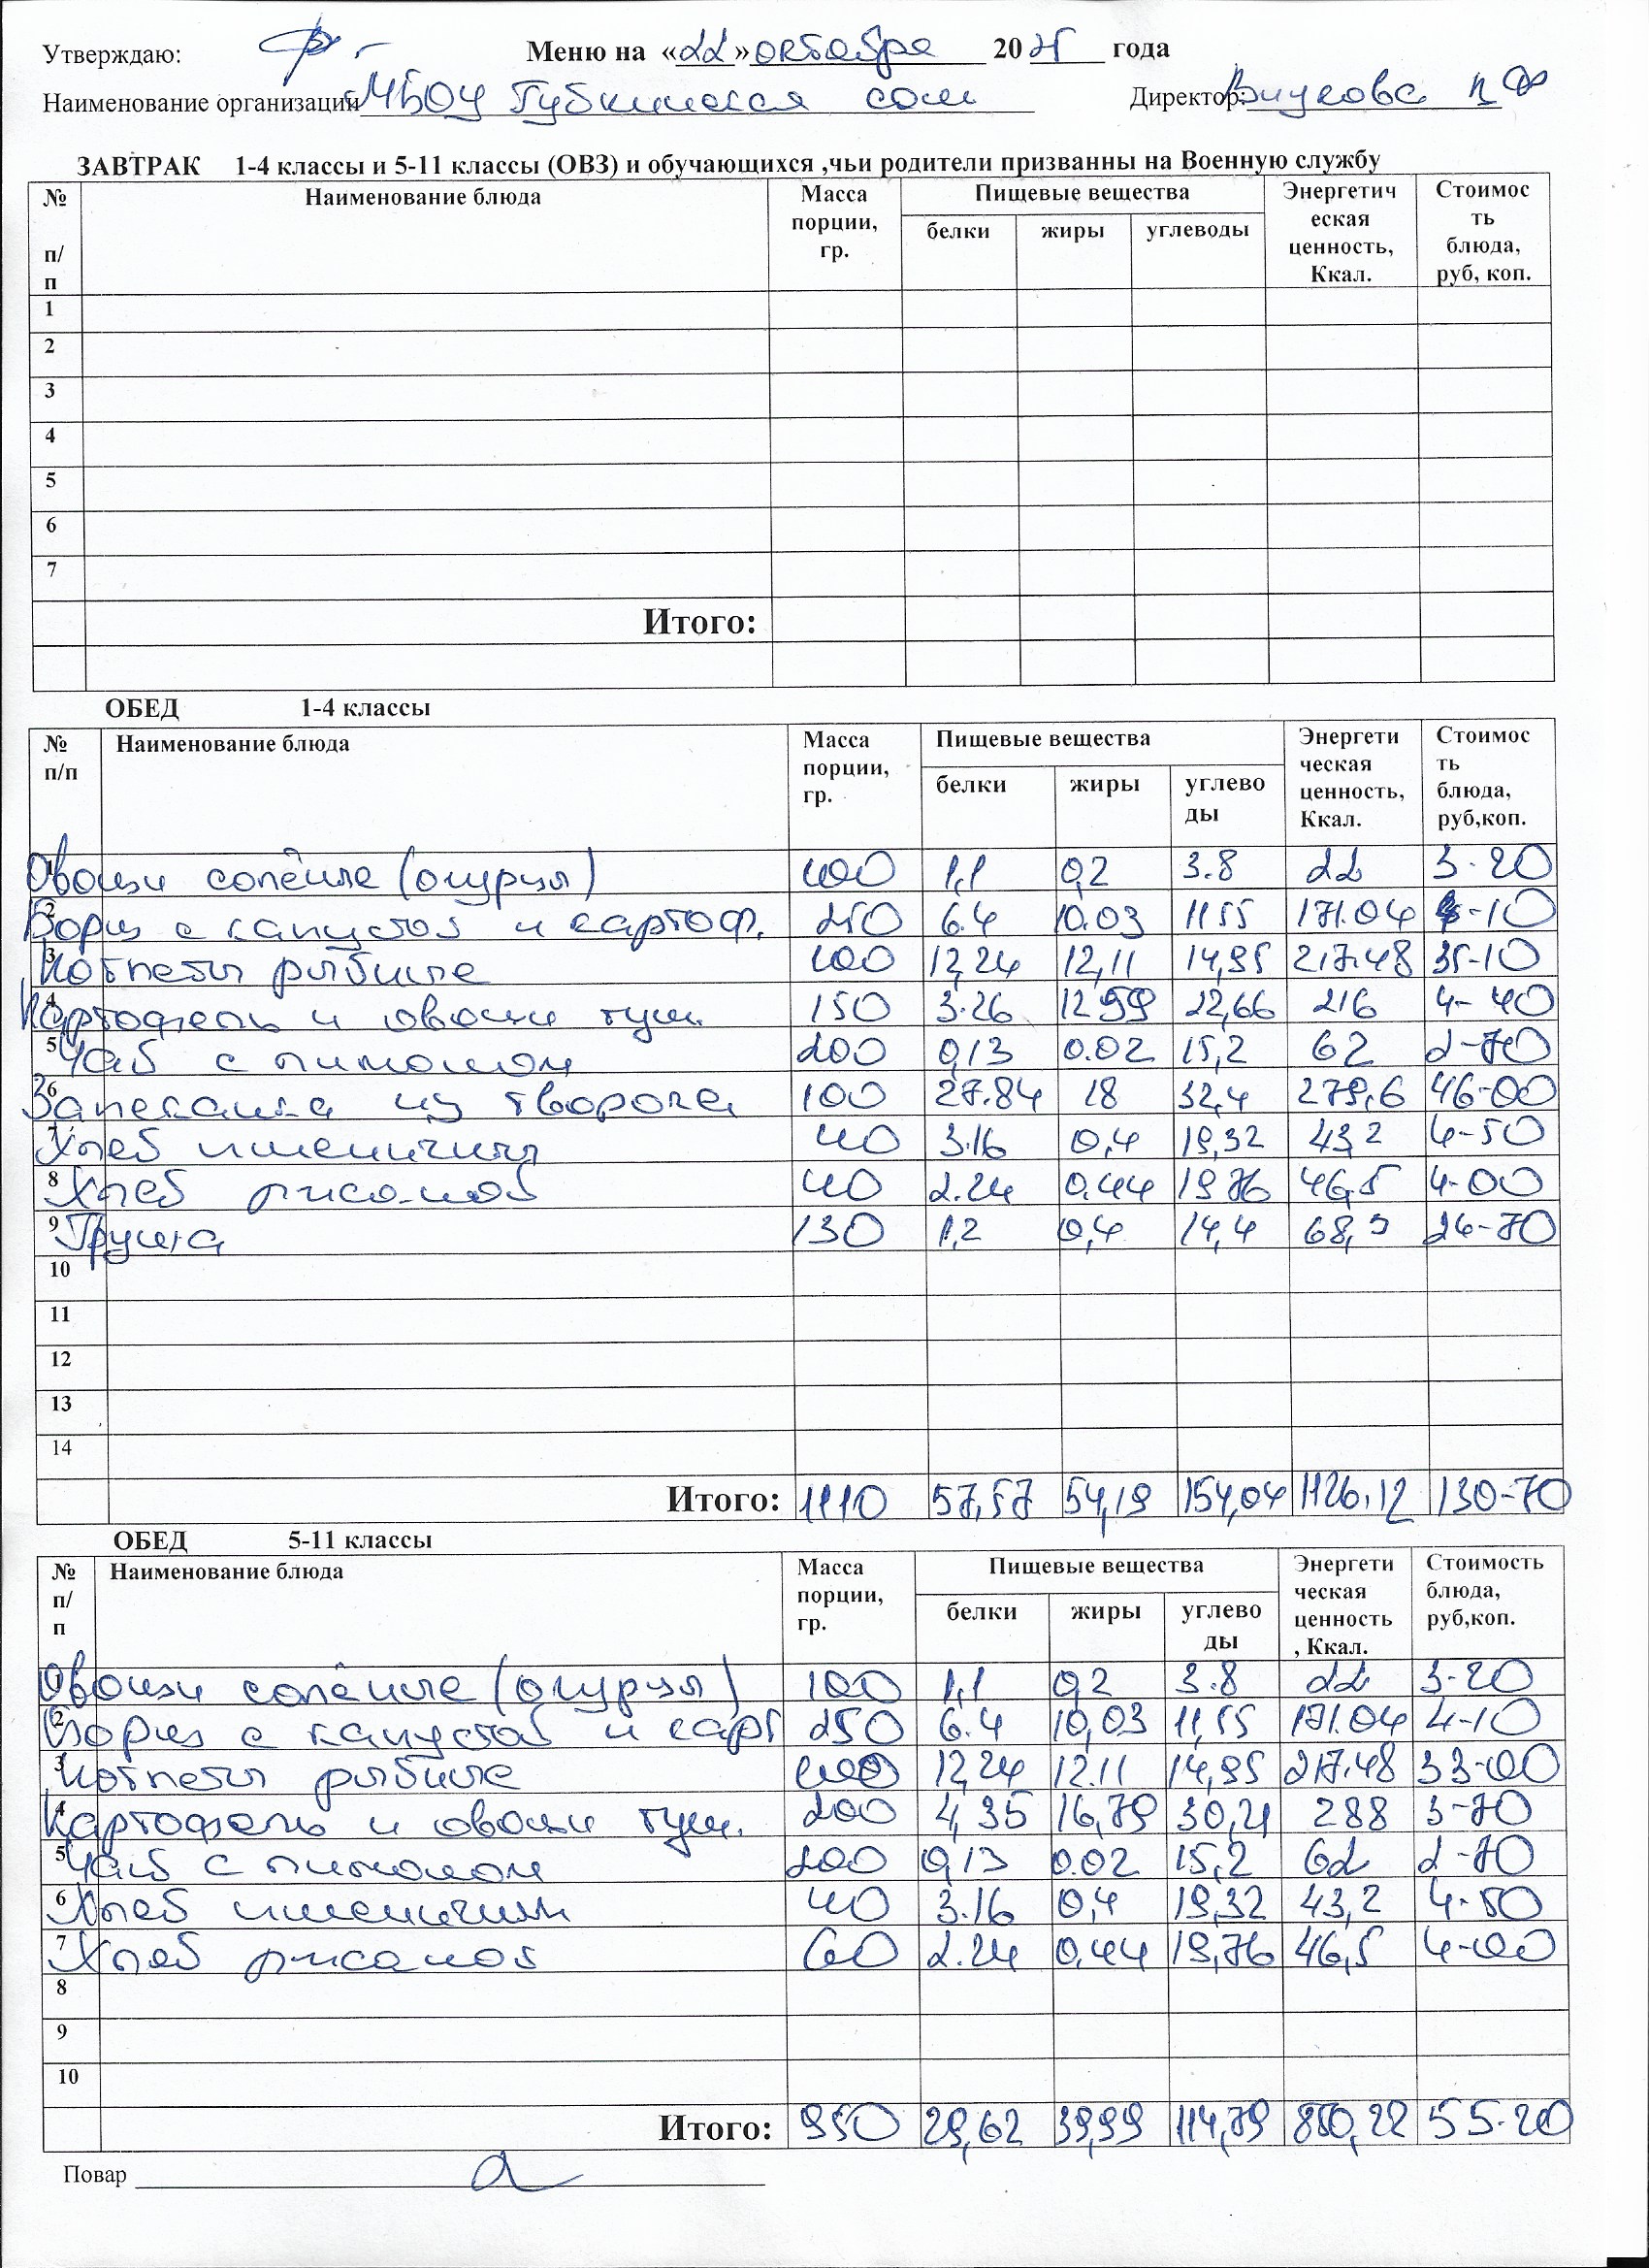 Утверждаю: Меню на «22» октября 2025 года
Наименование организации МБОУ Губкинская сош Директор: Внукова
ЗАВТРАК 1-4 классы и 5-11 классы (ОВЗ) и обучающихся ,чьи родители призванны на Военную службу
№ п/п Наименование блюда Масса порции, гр. Пищевые вещества Энергетическая ценность, Ккал. Стоимость блюда, руб, коп.
белки жиры углеводы
1
2
3
4
5
6
7
Итого:
ОБЕД 1-4 классы
№ п/п Наименование блюда Масса порции, гр. Пищевые вещества Энергетическая ценность, Ккал. Стоимость блюда, руб,коп.
белки жиры углеводы
1 Овощи солёные (огурцы) 100 1,1 0,2 3.8 22 3-20
2 Борщ с капустой и картоф. 250 6.4 10.03 11 55 171.04 -10
3 Котлеты рыбные 100 12,24 12,11 14,95 217.48 35-10
4 Картофель и овощи туш. 150 3.26 12 59 22,66 216 4-40
5 Чай с лимоном 200 0,13 0.02 15,2 62 2-70
6 Запеканка из творога 100 27.84 18 32,4 279,6 46-00
7 Хлеб пшеничный 40 3.16 0,4 19,32 43,2 4-50
8 Хлеб ржаной 40 2.24 0.44 19 76 46,5 4-00
9 Груша 130 1,2 0,4 14,4 68,5 26-70
10
11
12
13
14
Итого: 1110 57,57 54,19 154,04 1126.12 130-70
ОБЕД 5-11 классы
№ п/п Наименование блюда Масса порции, гр. Пищевые вещества Энергетическая ценность, Ккал. Стоимость блюда, руб,коп.
белки жиры углеводы
1 Овощи солёные (огурцы) 100 1,1 0,2 3.8 22 3-20
2 Борщ с капустой и карт 250 6.4 10,03 11,55 171.04 4-10
3 Котлеты рыбные 100 12,24 12.11 14,95 217.48 33-00
4 Картофель и овощи туш. 200 4,35 16,79 30,21 288 3-70
5 Чай с лимоном 200 0,13 0.02 15,2 62 2-70
6 Хлеб пшеничный 40 3.16 0,4 19,32 43,2 4-50
7 Хлеб ржаной 60 2.24 0,44 19,76 46,5 4-00
8
9
10
Итого: 950 29,62 39,99 114,79 850,22 55-20
Повар